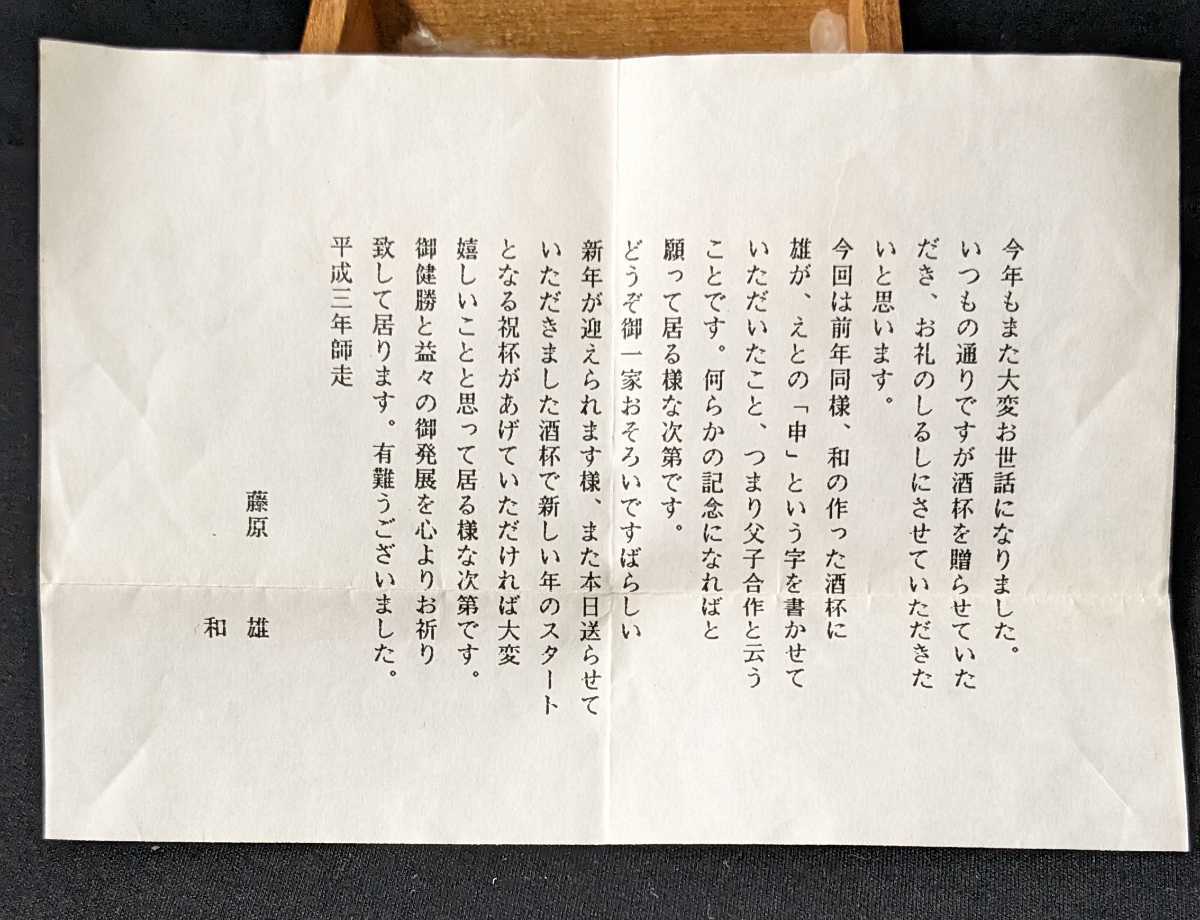 今年もまた大変お世話になりました。
いつもの通りですが酒杯を贈らせていた
だき、お礼のしるしにさせていただきた
いと思います。
今回は前年同様、和の作った酒杯に
雄が、えとの「申」という字を書かせて
いただいたこと、つまり父子合作と云う
ことです。何らかの記念になればと
願って居る様な次第です。
どうぞ御一家おそろいですばらしい
新年が迎えられます様、また本日送らせて
いただきました酒杯で新しい年のスタート
となる祝杯があげていただければ大変
嬉しいことと思って居る様な次第です。
御健勝と益々の御発展を心よりお祈り
致して居ります。有難うございました。
平成三年師走
藤原 雄
和